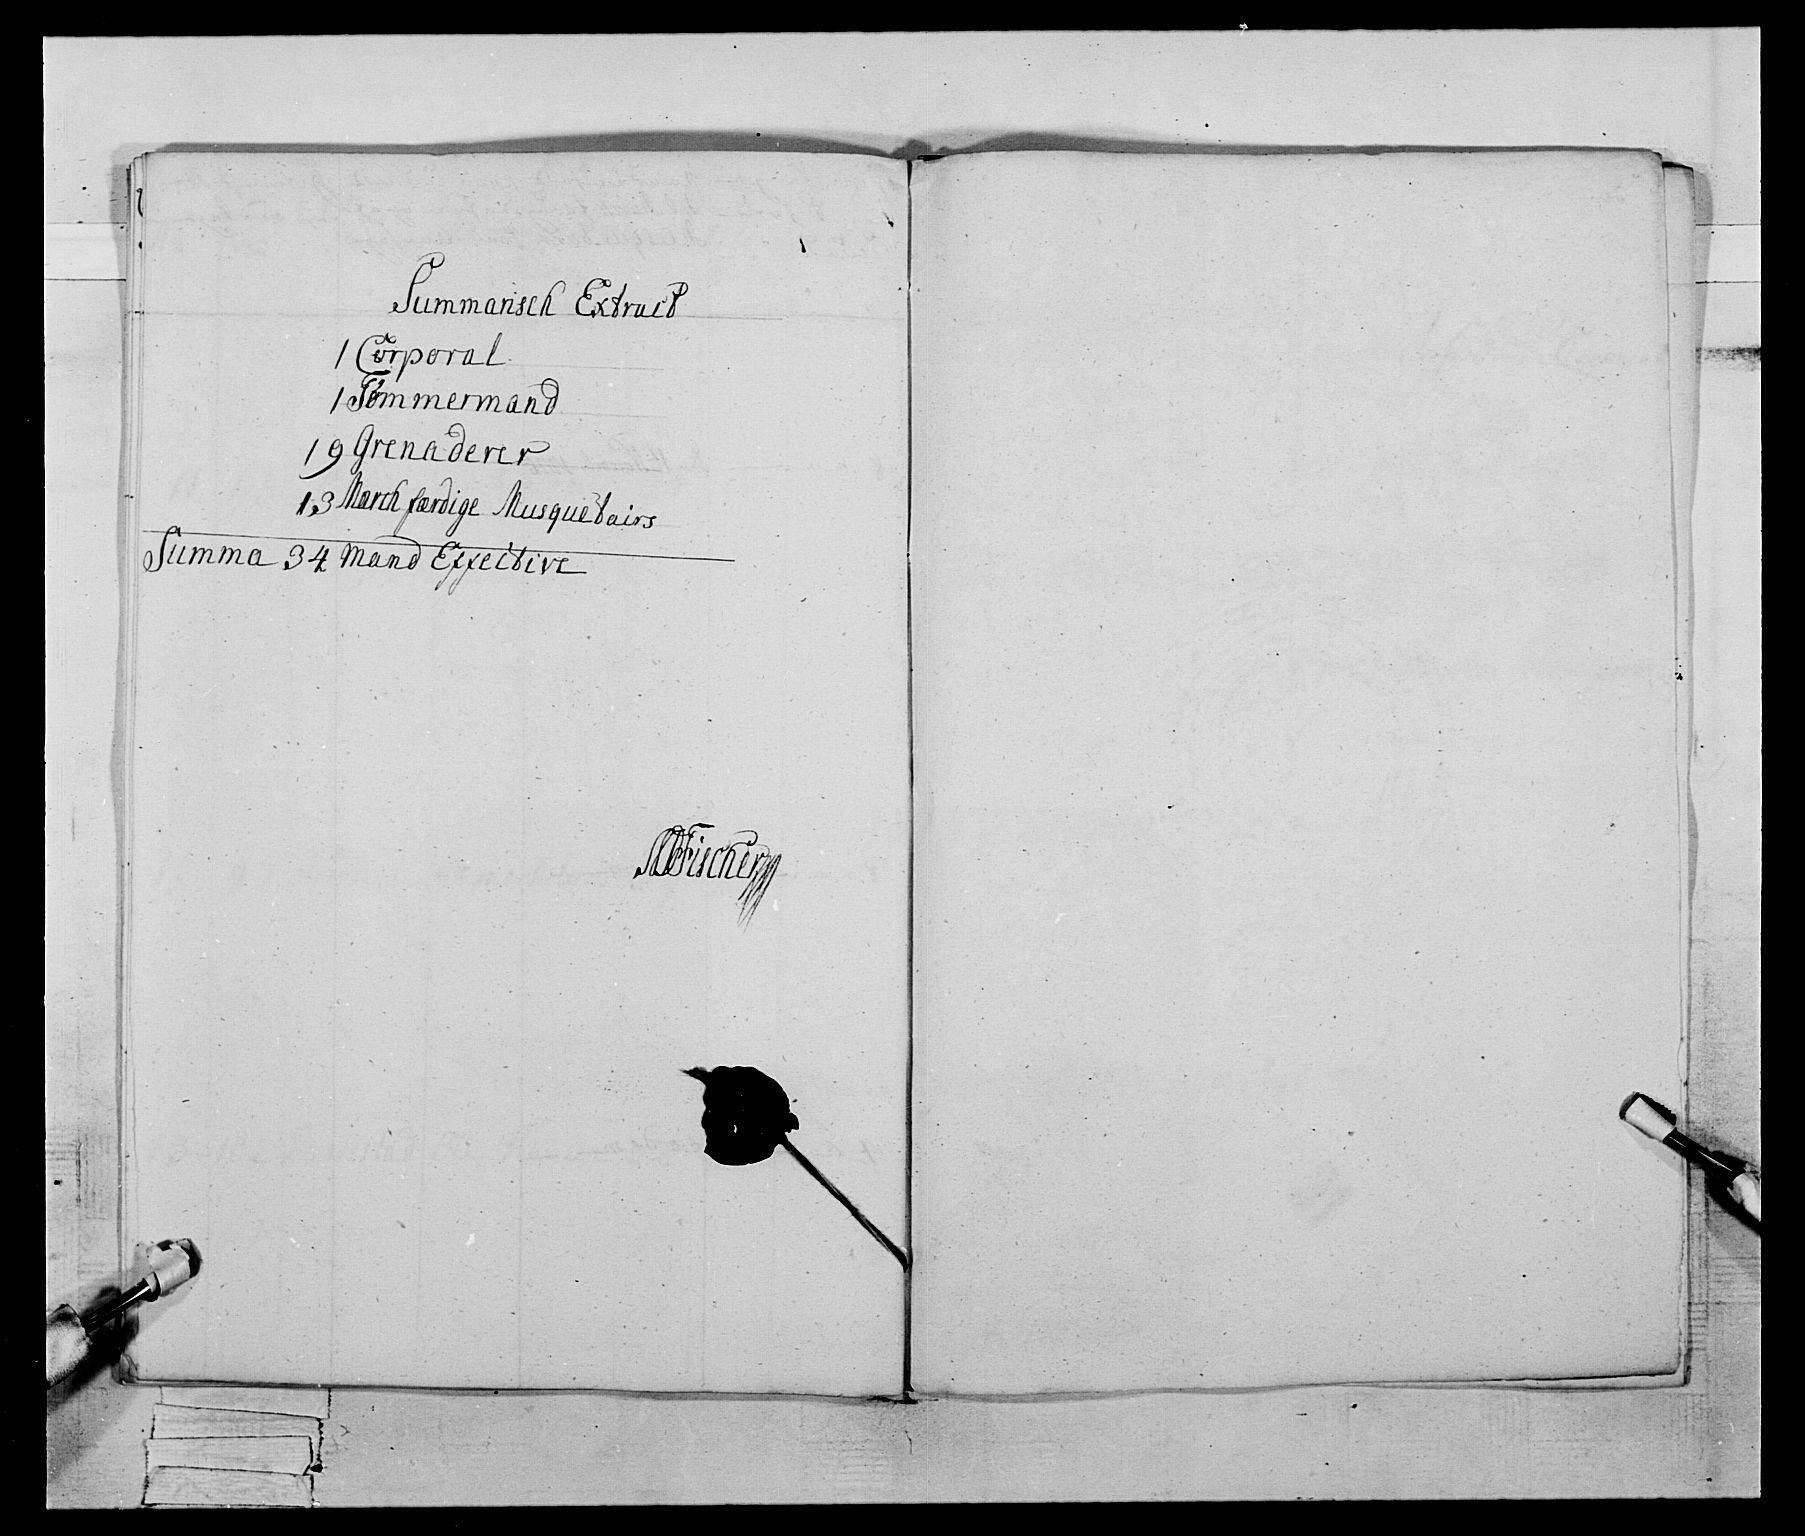 Summarisch Extract
1 Corporal
1 Tømmermand
19 Grenaderer
13 March færdige Musquetairs
Summa 34 Mand Effective
Fischer